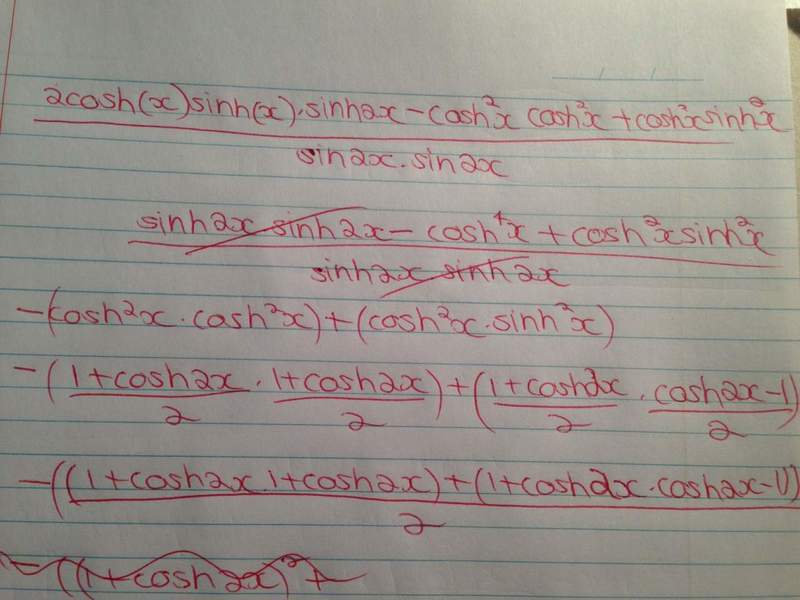 2cosh(x)sinh(x).sinh2x - cosh²x cosh²x + cosh²x sinh²x
sin2x.sin2x
sinh2x sinh2x - cosh⁴x + cosh²x sinh²x
sinh2x sinh2x
-(cosh²x.cosh²x) + (cosh²x.sinh²x)
-(1+cosh2x/2 . 1+cosh2x/2) + (1+cosh2x/2 . cosh2x-1/2)
-((1+cosh2x.1+cosh2x) + (1+cosh2x.cosh2x-1))
2
-((1+cosh2x)² +